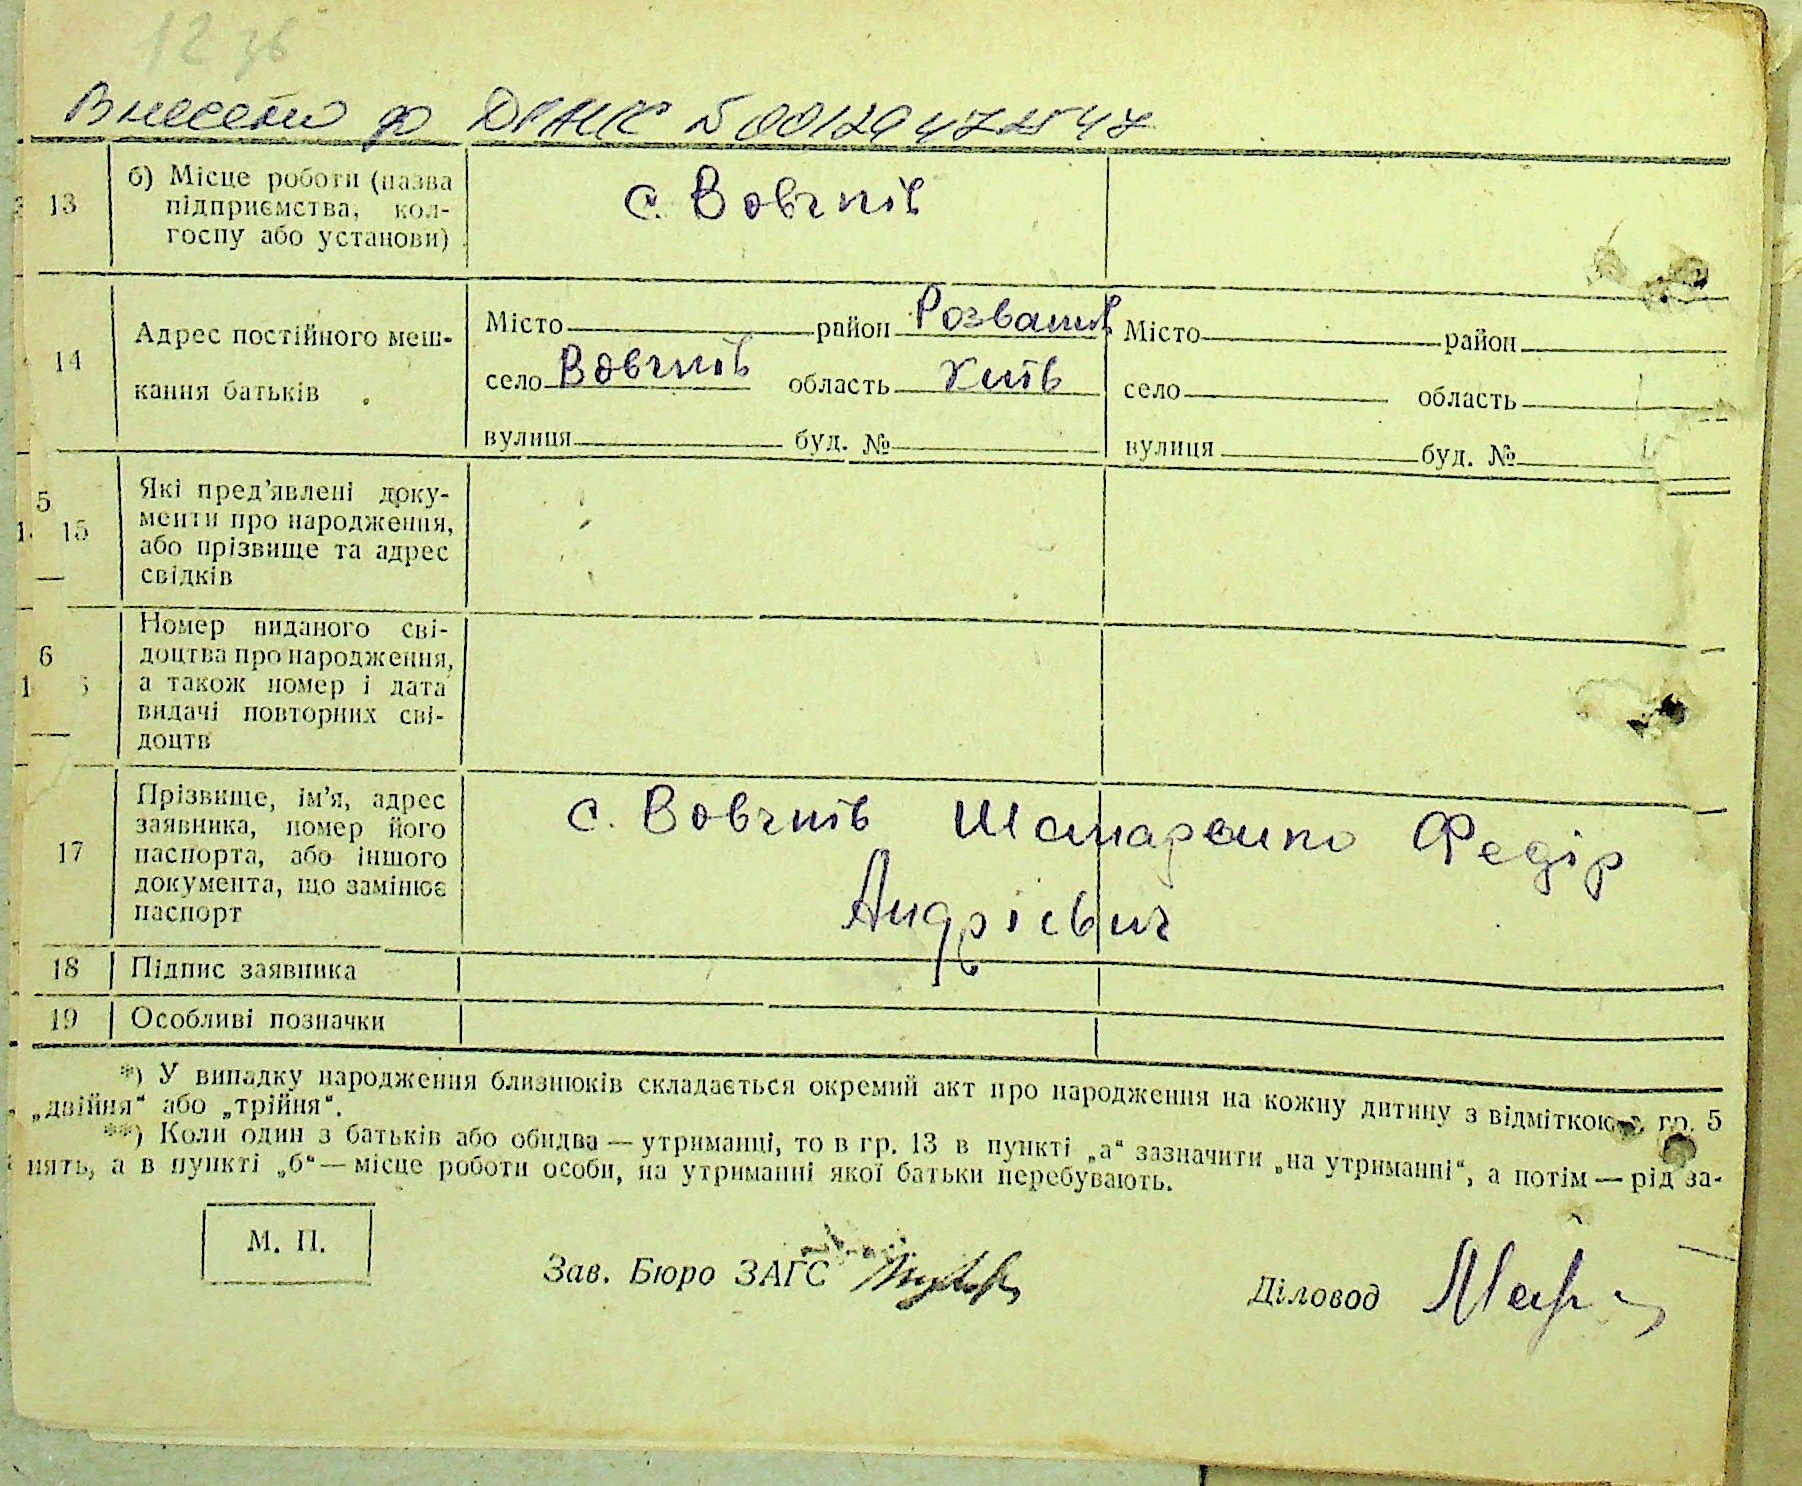 12 зб
Внесено до ДРАЦС № 00129472547
13 б) Місце роботи (назва підприємства, колгоспу або установи) с. Вовчків
14 Адрес постійного меш-
кання батьків
Місто район Розважів Місто район
село Вовчків область Київ село область
вулиця буд. № вулиця буд. №
5
15 Які пред’явлені доку-
менти про народження,
або прізвище та адрес
свідків
6
Номер виданого сві-
доцтва про народження,
а також номер і дата
видачі повторних сві-
доцтв
17 Прізвище, ім’я, адрес
заявника, номер його
паспорта, або іншого
документа, що замінює
паспорт
с. Вовчків Шапаренко Федір
Андрієвич
18 Підпис заявника
19 Особливі позначки
*) У випадку народження близнюків складається окремий акт про народження на кожну дитину з відміткою в гр. 5
„двійня“ або „трійня“.
**) Коли один з батьків або обидва — утриманці, то в гр. 13 в пункті „а“ зазначити „на утриманні“, а потім — рід за-
нять, а в пункті „б“ — місце роботи особи, на утриманні якої батьки перебувають.
М. П.
Зав. Бюро ЗАГС
Діловод